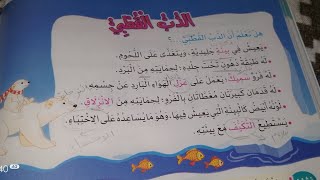 الدُّبُّ القُطْبِيُّ
هَلْ تَعْلَمُ أَنَّ الدُّبَّ القُطْبِيَّ ؟
يَعِيشُ فِي بِيئَةٍ جَلِيدِيَّةٍ، وَيَتَغَذَّى عَلَى اللُّحُومِ.
لَهُ طَبَقَةُ دُهُونٍ تَحْتَ جِلْدِهِ؛ لِحِمَايَتِهِ مِنَ البَرْدِ.
لَهُ فَرْوٌ سَمِيكٌ يَعْمَلُ عَلَى عَزْلِ الهَوَاءِ البَارِدِ عَنْ جِسْمِهِ.
لَهُ قَدَمَانِ كَبِيرَتَانِ مُغَطَّاتَانِ بِالفَرْوِ؛ لِحِمَايَتِهِ مِنَ الِانْزِلَاقِ.
لَوْنُهُ أَبْيَضُ كَالبِيئَةِ الَّتِي يَعِيشُ فِيهَا، وَهُوَ مَا يُسَاعِدُهُ عَلَى الِاخْتِبَاءِ.
يَسْتَطِيعُ التَّكَيُّفَ مَعَ بِيئَتِهِ.
40